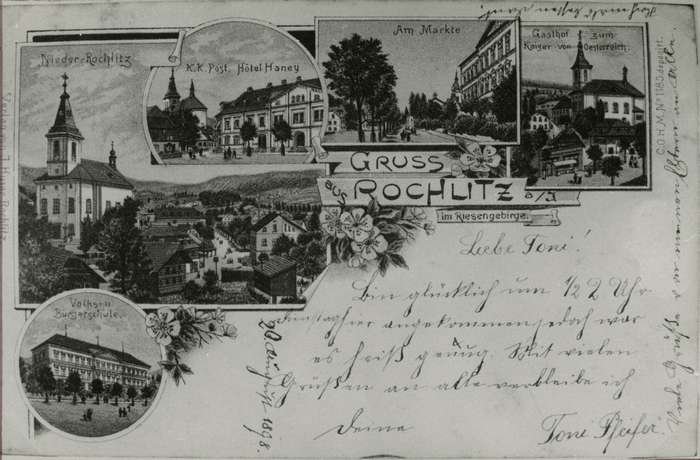 Nieder-Rochlitz
K.K. Post. Hôtel Haney
Am Markte
Gasthof zum
Kaiser von Oesterreich.
GRUSS
aus
ROCHLITZ
a/I
im Riesengebirge.
Volks-u
Bürgerschule.
Liebe Toni!
Bin glücklich um 1/2 2 Uhr
hier angekommen, jedoch war
es heiß genug. Mit vielen
Grüßen an alle verbleibe ich
Deine
Toni Pfeifer
20 August 1898.
Viele Grüße